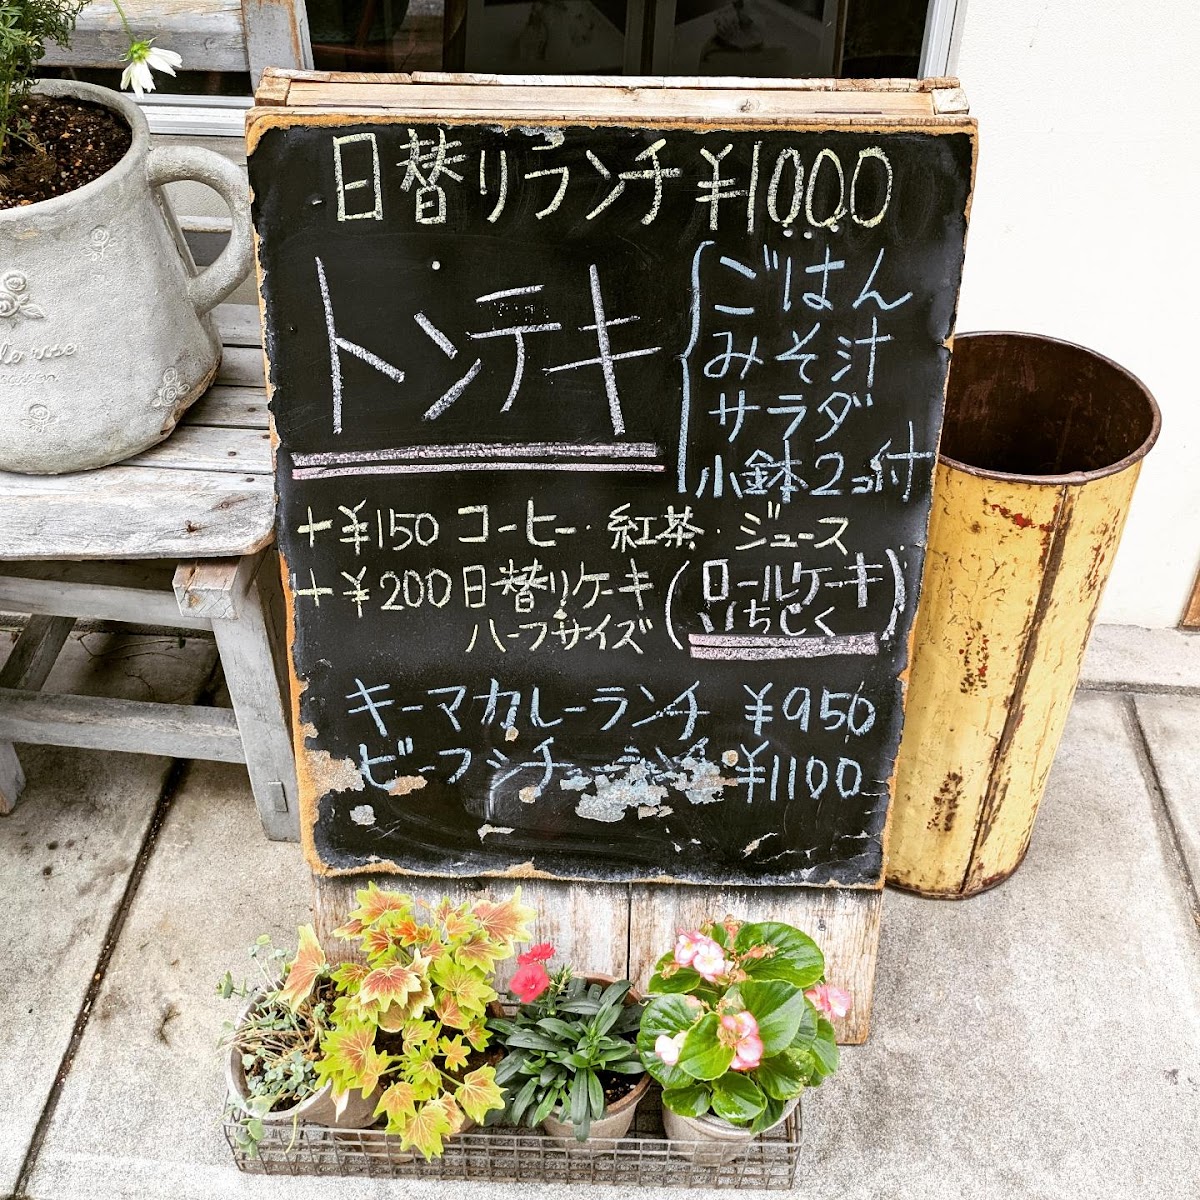 日替りランチ ¥1000
トンテキ
ごはん
みそ汁
サラダ
小鉢2コ付
+¥150 コーヒー・紅茶・ジュース
+¥200 日替りケーキ
ハーフサイズ
(ロールケーキ
いちじく)
キーマカレーランチ ¥950
ビーフシチューランチ ¥1100